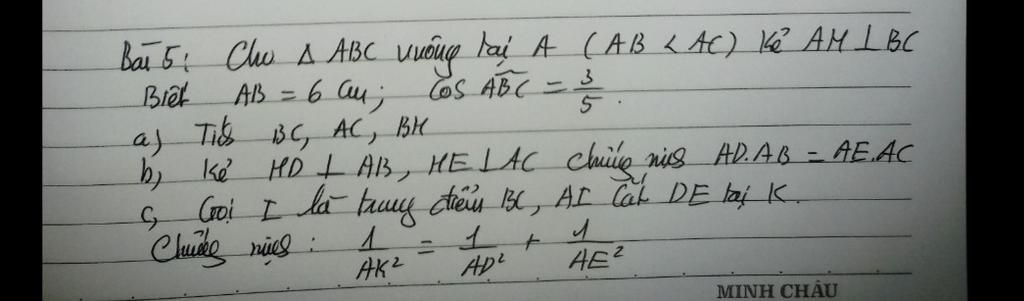 Bài 5: Cho Δ ABC vuông tại A (AB < AC) Kẻ AH ⊥ BC
Biết AB = 6 cm; Cos ABC = 3/5.
a) Tính BC, AC, BH
b, Kẻ HD ⊥ AB, HE ⊥ AC chứng minh AD.AB = AE.AC
c, Gọi I là trung điểm BC, AI cắt DE tại K.
Chứng minh: 1/AK² = 1/AD² + 1/AE²
MINH CHÂU